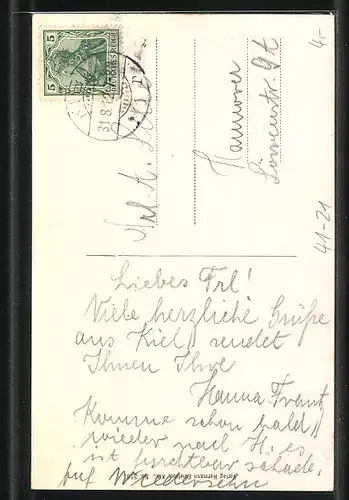 5 5
31.8.
Frl. A.
Hannover
Löwenstr. 9 I
4,-
41-21
Liebes Frl!
Viele herzliche Grüße
aus Kiel sendet
Ihnen Ihre
Hanna Frantz
Komme schon bald
wieder nach H. es
ist furchtbar schade.
Auf Wiedersehn